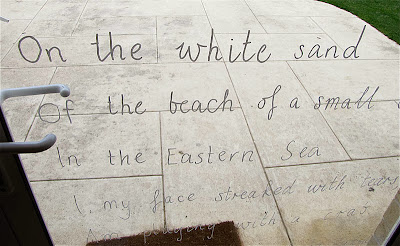 On the white sand
Of the beach of a small
In the Eastern Sea
I, my face streaked with tears
Am playing with a